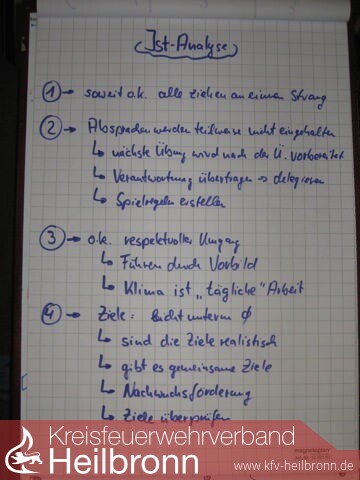 Ist-Analyse
1 → soweit o.k. alle ziehen an einem Strang
2 → Absprachen werden teilweise nicht eingehalten
↳ nächste Übung wird nach der Ü. vorbereitet
↳ Verantwortung übertragen => delegieren
↳ Spielregeln erstellen
3 → o.k. respektvoller Umgang
↳ Führen durch Vorbild
↳ Klima ist „tägliche“ Arbeit
4 → Ziele: leicht unterm Ø
↳ sind die Ziele realistisch
↳ gibt es gemeinsame Ziele
↳ Nachwuchsförderung
↳ Ziele überprüfen
Kreisfeuerwehrverband
Heilbronn
www.kfv-heilbronn.de